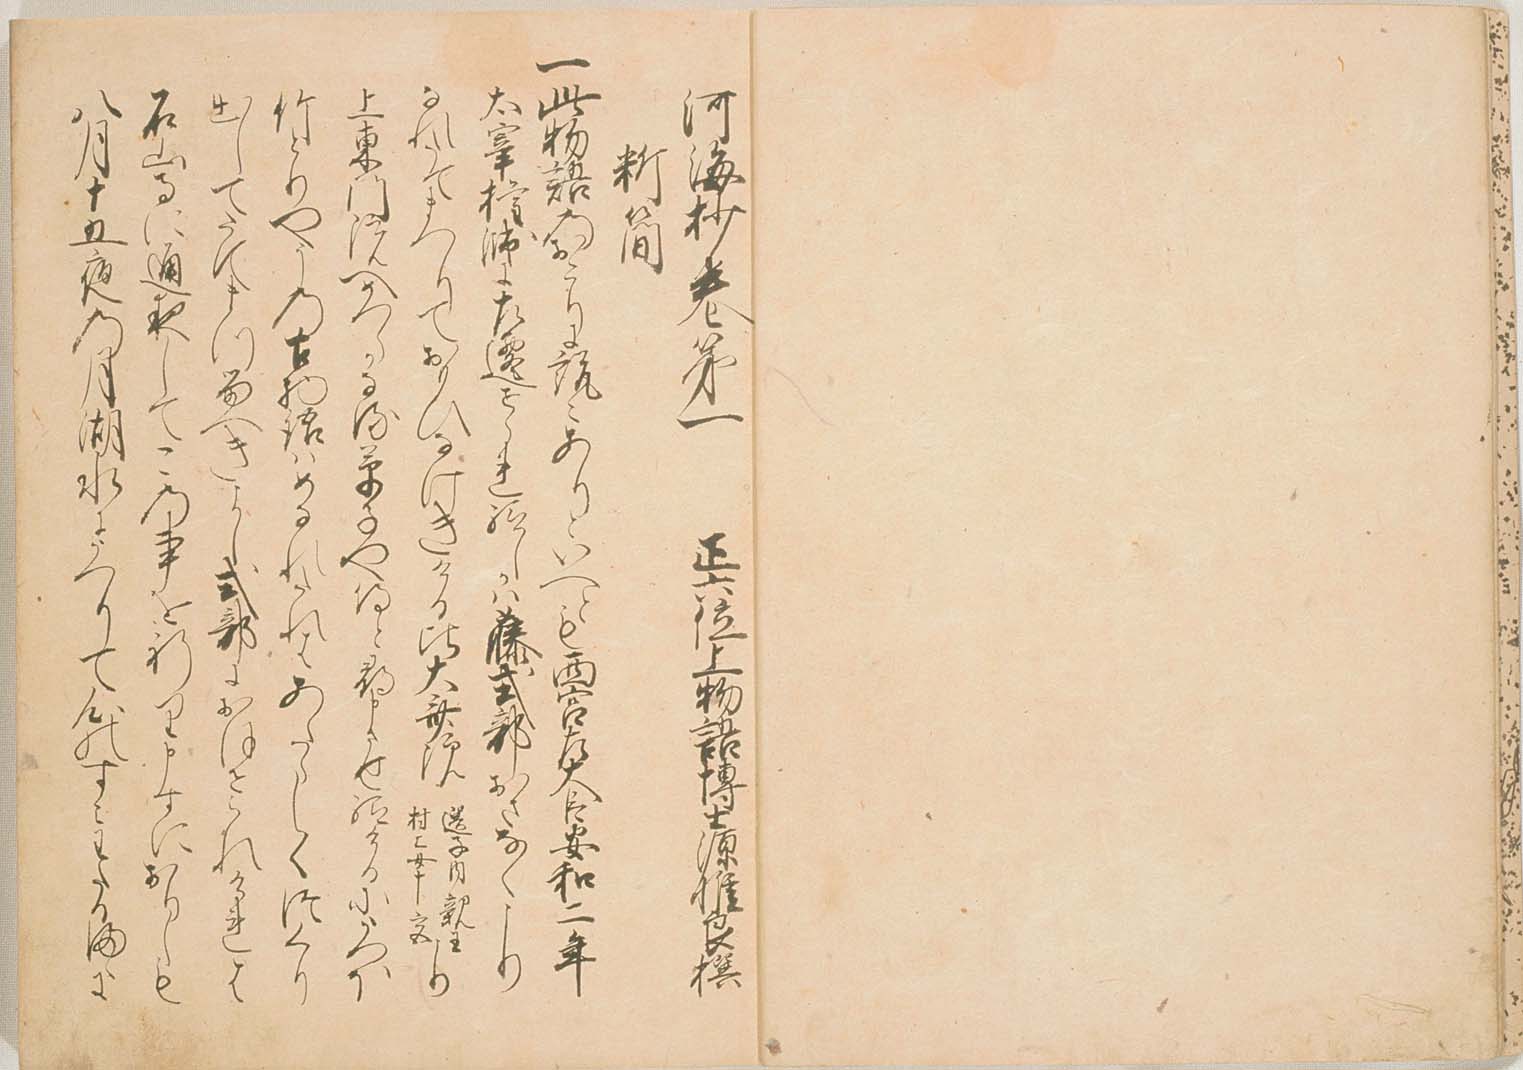 河海抄巻第一　正六位上物語博士源惟良撰
料簡
一此物語のおこりに説々ありといへとも西宮左大臣安和二年
太宰権帥に左遷せられ給しかは藤式部おさなくより
なれたてまつりておもひなけきける比大斎院選子内親王村上女十宮より
上東門院へめつらかなる草子や侍ると尋申させ給けるにうつほ
竹とりやうの古物語はめなれたれはあたらしくつくり
出してたてまつるへきよし式部におほせられけれは
石山寺に通夜してこの事を祈申すにおりしも
八月十五夜の月湖水にうつりて心のすみわたるまゝに